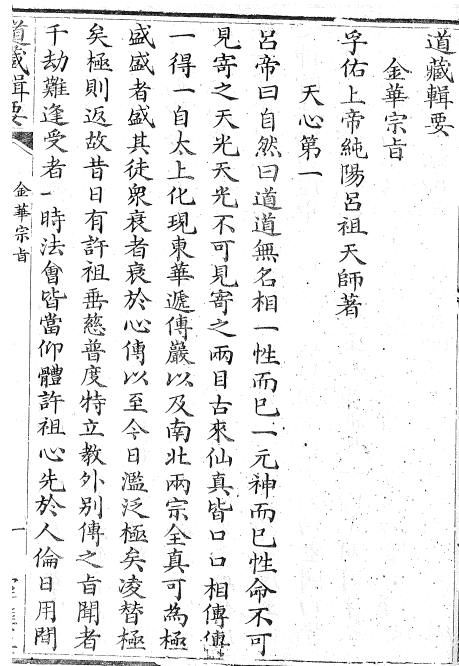 道藏輯要
金華宗旨
孚佑上帝純陽呂祖天師著
天心第一
呂帝曰自然曰道道無名相一性而已一元神而已性命不可
見寄之天光天光不可見寄之兩目古來仙真皆口口相傳傳
一得一自太上化現東華遞傳嚴以及南北兩宗全真可為極
盛盛者盛其徒衆衰者衰於心傳以至今日濫泛極矣凌替極
矣極則返故昔日有許祖垂慈普度特立教外別傳之旨聞者
千劫難逢受者一時法會皆當仰體許祖心先於人倫日用間
道藏輯要
金華宗旨
一